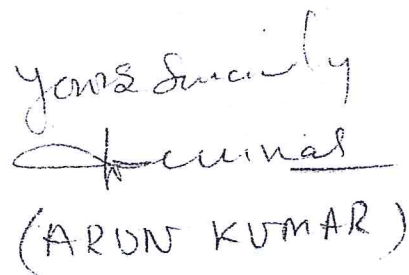 Yours Sincerely
(ARUN KUMAR)